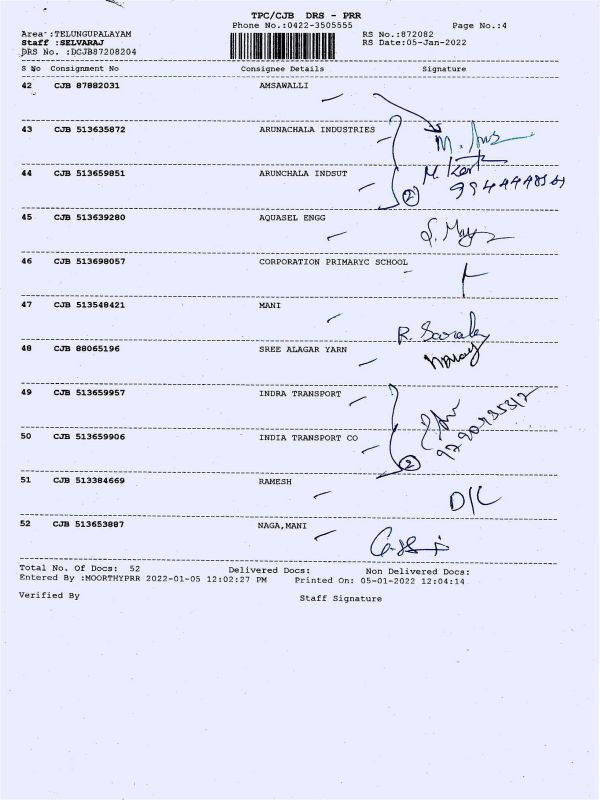 TPC/CJB DRS - PRR
Phone No.:0422-3505555 Page No.:4
Area :TELUNGUPALAYAM RS No.:872082
Staff :SELVARAJ RS Date:05-Jan-2022
DRS No. :DCJB87208204
S No Consignment No Consignee Details Signature
42 CJB 87882031 AMSAWALLI
43 CJB 513635872 ARUNACHALA INDUSTRIES
M.
44 CJB 513659851 ARUNCHALA INDSUT
M.
2
45 CJB 513639280 AQUASEL ENGG
46 CJB 513698057 CORPORATION PRIMARYC SCHOOL
47 CJB 513548421 MANI
R.
48 CJB 88065196 SREE ALAGAR YARN
49 CJB 513659957 INDRA TRANSPORT
50 CJB 513659906 INDIA TRANSPORT CO
2
51 CJB 513384669 RAMESH
D/C
52 CJB 513653887 NAGA,MANI
Total No. Of Docs: 52 Delivered Docs: Non Delivered Docs:
Entered By :MOORTHYPRR 2022-01-05 12:02:27 PM Printed On: 05-01-2022 12:04:14
Verified By Staff Signature